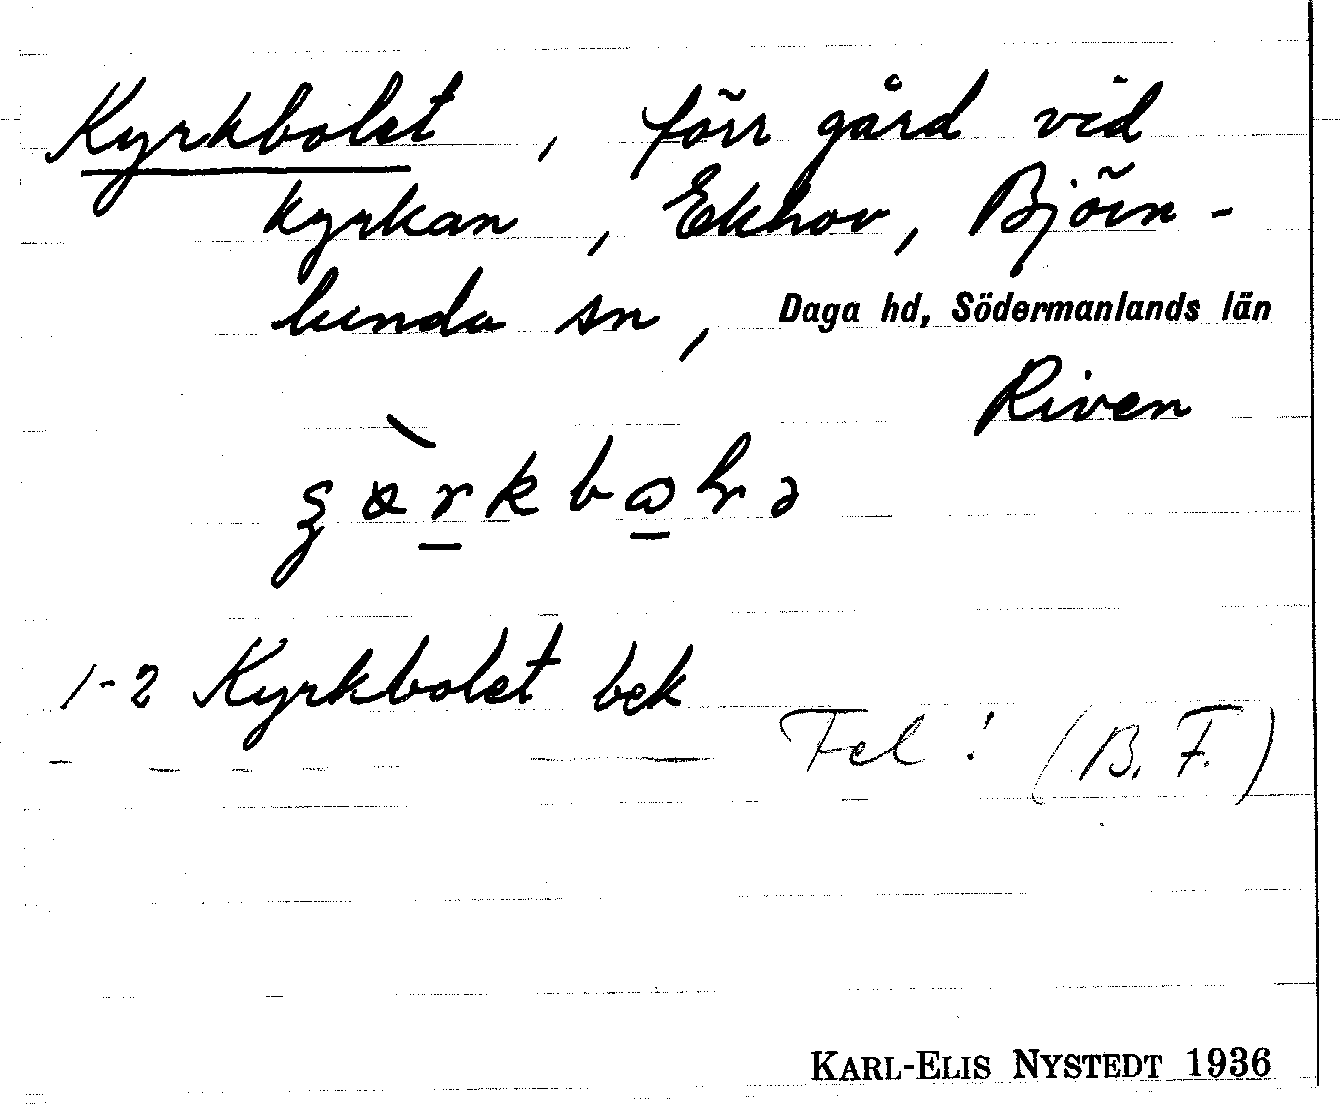 Kyrkbolet, förr gård vid
kyrkan, Ekhov, Björn-
lunda sn, Daga hd, Södermanlands län
Riven
1-2 Kyrkbolet bek
Fel! (B. F.)
KARL-ELIS NYSTEDT 1936